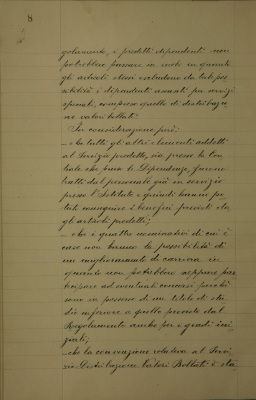 8
golamento, i predetti dipendenti non
potrebbero passare in ruolo in quanto
gli articoli stessi escludono da tale pos=
sibilità i dipendenti assunti per servizi
speciali, compreso quello di distribuzio=
ne valori bollati.
In considerazione però:
– che tutti gli altri elementi addetti
al Servizio predetto, sia presso la Cen
trale che presso le Dipendenze, furono
tratti dal personale già in servizio
presso l'Istituto e quindi hanno po=
tuto conseguire i benefici previsti da=
gli articoli predetti;
– che i quattro nominativi di cui è
caso non hanno la possibilità di
un miglioramento di carriera in
quanto non potrebbero neppure par
tecipare ad eventuali concorsi perchè
sono in possesso di un titolo di stu=
dio inferiore a quello previsto dal
Regolamento anche per i gradi ini
ziali;
– che la convenzione relativa al Servi
zio Distribuzione Valori Bollati è sta